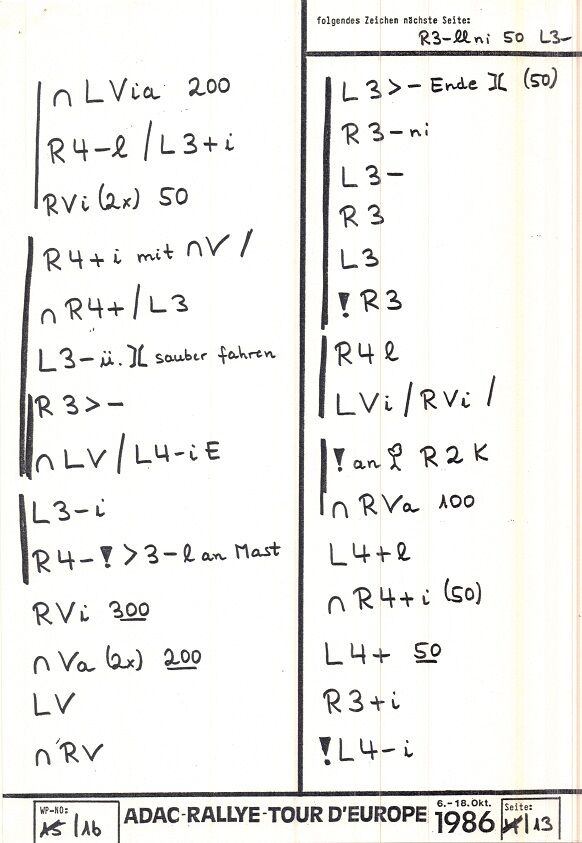 folgendes Zeichen nächste Seite:
R3-llni 50 L3-
∩ LVia 200
R4-l / L3+i
RVi (2x) 50
R4+i mit ∩V /
∩ R4+ / L3
L3- ü. ][ sauber fahren
R3>-
∩ LV / L4-iE
L3-i
R4-! >3-l an Mast
RVi 300
∩ Va (2x) 200
LV
∩ RV
L3>- Ende ][ (50)
R3-ni
L3-
R3
L3
! R3
R4l
LVi / RVi /
! an R2K
∩ RVa 100
L4+l
∩ R4+i (50)
L4+ 50
R3+i
! L4-i
WP-NO:
15 / 16
ADAC-RALLYE-TOUR D'EUROPE 6.-18.Okt. 1986
Seite:
/ 13